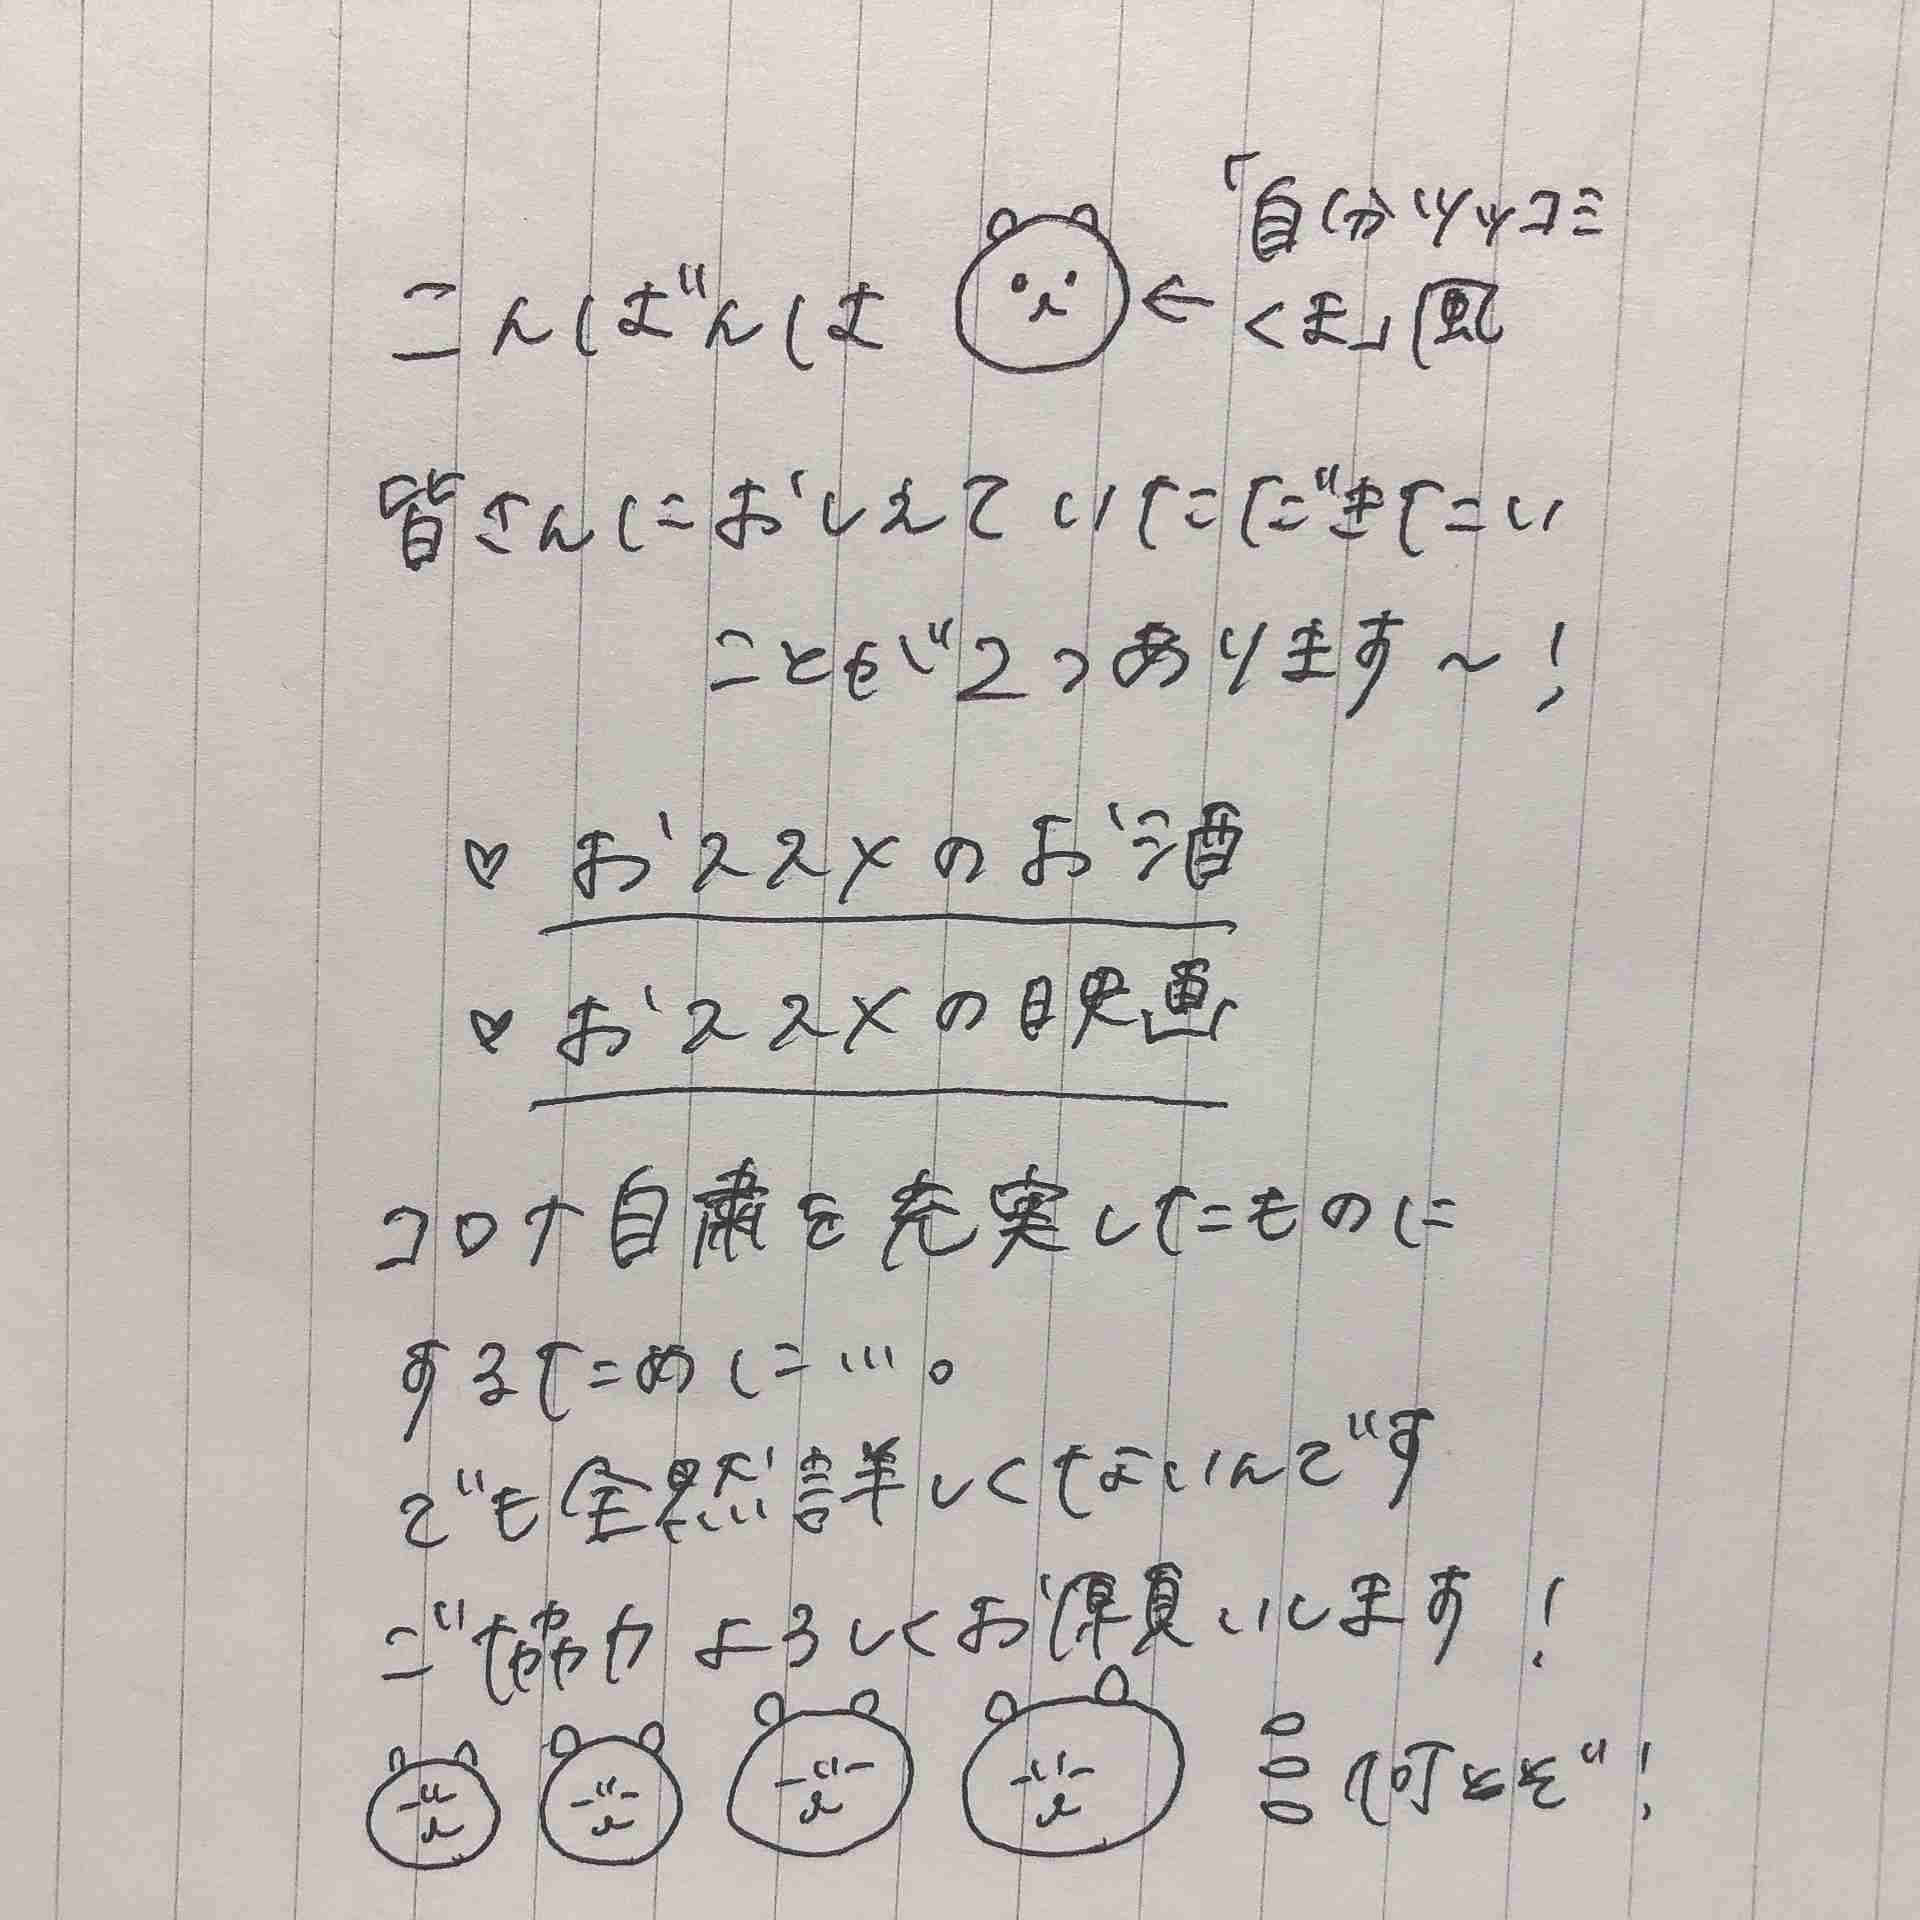 こんばんは ← 「自分ツッコミ
くま」風
皆さんにおしえていただきたい
ことが2つあります~!
♡ おススメのお酒
♡ おススメの映画
コロナ自粛を充実したものに
するために…。
でも全然詳しくないんです
ご協力よろしくお願いします!
何とぞ!